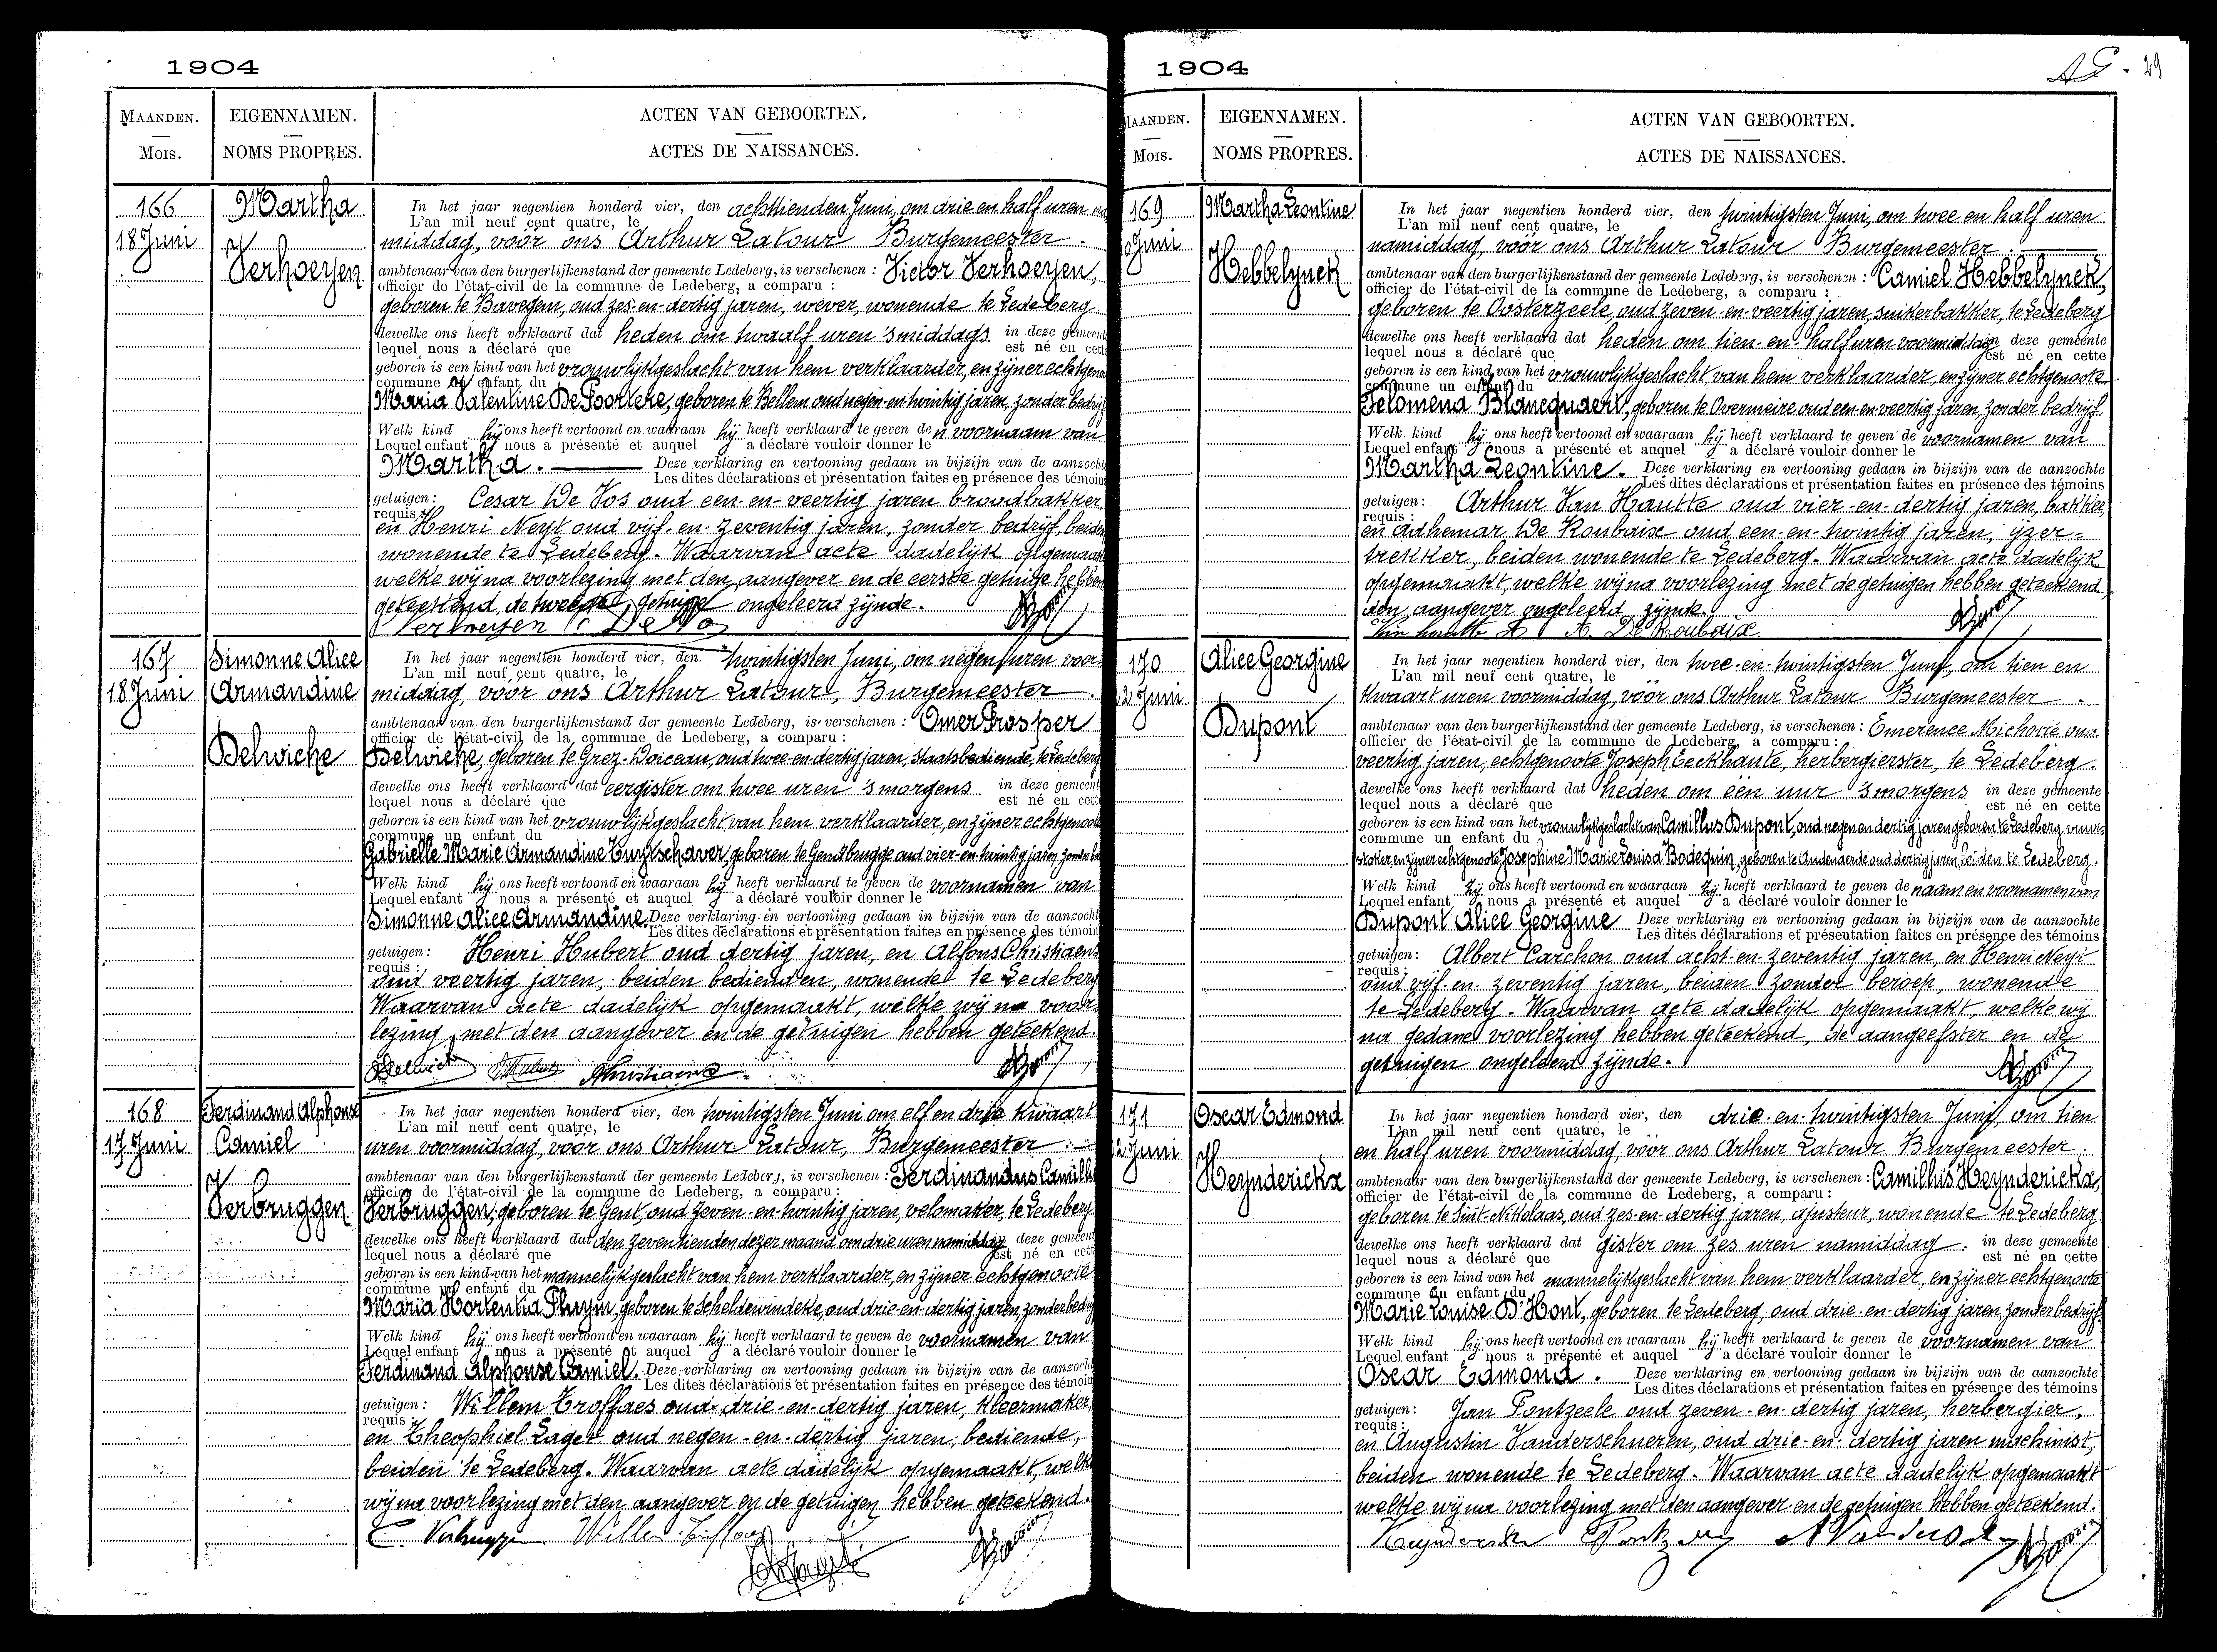 1904
MAANDEN.
MOIS.
EIGENNAMEN.
NOMS PROPRES.
ACTEN VAN GEBOORTEN.
ACTES DE NAISSANCES.
166
18 Juni
Martha
Verhoeyen
In het jaar negentien honderd vier, den achttienden Juni, om drie en half uren
L'an mil neuf cent quatre, le
middag, vóór ons Arthur Latour Burgemeester.
ambtenaar van den burgerlijkenstand der gemeente Ledeberg, is verschenen : Victor Verhoeyen,
officier de l'état-civil de la commune de Ledeberg, a comparu :
geboren te Bavegem, oud zes-en-dertig jaren, wever, wonende te Ledeberg
dewelke ons heeft verklaard dat heden om twaalf uren 's middags in deze gemeent
lequel nous a déclaré que est né en cett
geboren is een kind van het vrouwlijkgeslacht van hem verklaarder, en zijner echtgeno
commune un enfant du
Maria Valentine De Poortere, geboren te Bellem oud negen-en-twintig jaren, zonder bedrijf
Welk kind hij ons heeft vertoond en waaraan hij heeft verklaard te geven de n voornaam van
Lequel enfant nous a présenté et auquel a déclaré vouloir donner le
Martha. Deze verklaring en vertooning gedaan in bijzijn van de aanzocht
Les dites déclarations et présentation faites en présence des témoin
getuigen : Cesar De Vos oud een-en-veertig jaren broodbakker,
requis :
en Henri Neyt oud vijf-en-zeventig jaren, zonder bedrijf, beiden
wonende te Ledeberg. Waarvan acte dadelijk opgemaakt
welke wij na voorlezing met den aangever en de eerste getuige hebben
geteekend, de tweede getuige ongeleerd zijnde.
Verhoeyen C De Vos
167
18 Juni
Simonne Alice
Armandine
Delwiche
In het jaar negentien honderd vier, den twintigsten Juni, om negen uren voor-
L'an mil neuf cent quatre, le
middag, vóór ons Arthur Latour, Burgemeester.
ambtenaar van den burgerlijkenstand der gemeente Ledeberg, is verschenen : Omer Prosper
officier de l'état-civil de la commune de Ledeberg, a comparu :
Delwiche, geboren te Grez-Doiceau, oud twee-en-dertig jaren, staatsbediende, te Ledeberg
dewelke ons heeft verklaard dat eergister om twee uren 's morgens in deze gemeent
lequel nous a déclaré que est né en cett
geboren is een kind van het vrouwlijkgeslacht van hem verklaarder, en zijner echtgenoote
commune un enfant du
Gabrielle Marie Armandine Tuytschaver, geboren te Gendbrugge oud vier-en-twintig jaren,
Welk kind hij ons heeft vertoond en waaraan hij heeft verklaard te geven de voornamen van
Lequel enfant nous a présenté et auquel a déclaré vouloir donner le
Simonne Alice Armandine. Deze verklaring en vertooning gedaan in bijzijn van de aanzocht
Les dites déclarations et présentation faites en présence des témoin
getuigen : Henri Hubert oud dertig jaren, en Alfons Christiaens
requis :
oud veertig jaren, beiden bedienden, wonende te Ledeberg
Waarvan acte dadelijk opgemaakt, welke wij na voor-
lezing met den aangever en de getuigen hebben geteekend.
Delwiche Hubert AChristiaens
168
17 Juni
Ferdinand Alphonse
Camiel
Verbruggen
In het jaar negentien honderd vier, den twintigsten Juni om elf en drie kwaart
L'an mil neuf cent quatre, le
uren voormiddag, vóór ons Arthur Latour, Burgemeester
ambtenaar van den burgerlijkenstand der gemeente Ledeberg, is verschenen : Ferdinandus Camille
officier de l'état-civil de la commune de Ledeberg, a comparu :
Verbruggen, geboren te Gent, oud zeven-en-twintig jaren, velomaker, te Ledeberg
dewelke ons heeft verklaard dat den zeventienden dezer maand om drie uren namiddag in deze gemeent
lequel nous a déclaré que est né en cett
geboren is een kind van het mannelijkgeslacht van hem verklaarder, en zijner echtgenoote
commune un enfant du
Maria Hortentia Pluym, geboren te Scheldewindeke, oud drie-en-dertig jaren, zonder bedrijf
Welk kind hij ons heeft vertoond en waaraan hij heeft verklaard te geven de voornamen van
Lequel enfant nous a présenté et auquel a déclaré vouloir donner le
Ferdinand Alphonse Camiel. Deze verklaring en vertooning gedaan in bijzijn van de aanzocht
Les dites déclarations et présentation faites en présence des témoin
getuigen : Willem Troffaes oud drie-en-dertig jaren, kleermaker,
requis :
en Theophiel Laget oud negen-en-dertig jaren, bediende,
beiden te Ledeberg. Waarvan acte dadelijk opgemaakt, welke
wij na voorlezing met den aangever en de getuigen hebben geteekend.
1904
29
MAANDEN.
MOIS.
EIGENNAMEN.
NOMS PROPRES.
ACTEN VAN GEBOORTEN.
ACTES DE NAISSANCES.
169
0 Juni
Martha Leontine
Hebbelynck
In het jaar negentien honderd vier, den twintigsten Juni, om twee en half uren
L'an mil neuf cent quatre, le
namiddag, vóór ons Arthur Latour Burgemeester
ambtenaar van den burgerlijkenstand der gemeente Ledeberg, is verschenen : Camiel Hebbelynck,
officier de l'état-civil de la commune de Ledeberg, a comparu :
geboren te Oosterzeele, oud zeven-en-veertig jaren, suikerbakker, te Ledeberg
dewelke ons heeft verklaard dat heden om tien-en-half uren voormiddag in deze gemeente
lequel nous a déclaré que est né en cette
geboren is een kind van het vrouwlijkgeslacht van hem verklaarder, en zijner echtgenoote
commune un enfant du
Felomena Blancquaert, geboren te Overmeire oud een-en-veertig jaren, zonder bedrijf
Welk kind hij ons heeft vertoond en waaraan hij heeft verklaard te geven de voornamen van
Lequel enfant nous a présenté et auquel a déclaré vouloir donner le
Martha Leontine. Deze verklaring en vertooning gedaan in bijzijn van de aanzochte
Les dites déclarations et présentation faites en présence des témoins
getuigen : Arthur Van Hautte oud vier-en-dertig jaren, bakker,
requis :
en Adhemar De Roubaix oud een-en-twintig jaren, ijzer-
trekker, beiden wonende te Ledeberg. Waarvan acte dadelijk
opgemaakt, welke wij na voorlezing met de getuigen hebben geteekend,
den aangever ongeleerd zijnde.
Van hautte A A. De Roubaix
170
2 Juni
Alice Georgine
Dupont
In het jaar negentien honderd vier, den twee-en-twintigsten Juni, om tien en
L'an mil neuf cent quatre, le
kwaart uren voormiddag, vóór ons Arthur Latour Burgemeester.
ambtenaar van den burgerlijkenstand der gemeente Ledeberg, is verschenen : Emerence oud
officier de l'état-civil de la commune de Ledeberg, a comparu :
veertig jaren, echtgenoote Joseph Eeckhaute, herbergierster, te Ledeberg.
dewelke ons heeft verklaard dat heden om één uur 's morgens in deze gemeente
lequel nous a déclaré que est né en cette
geboren is een kind van het vrouwlijkgeslacht van Camillus Dupont, oud negen en dertig jaren geboren te Ledeberg, vuur-
commune un enfant du
stoker, en zijner echtgenoote Josephine Marie Louisa Bodequin, geboren te Audenaerde oud dertig jaren, beiden te Ledeberg.
Welk kind zij ons heeft vertoond en waaraan zij heeft verklaard te geven de naam en voornamen van
Lequel enfant nous a présenté et auquel a déclaré vouloir donner le
Dupont Alice Georgine Deze verklaring en vertooning gedaan in bijzijn van de aanzochte
Les dites déclarations et présentation faites en présence des témoins
getuigen : Albert Carchon oud acht-en-zeventig jaren, en Henri Neyt
requis :
oud vijf-en-zeventig jaren, beiden zonder beroep, wonende
te Ledeberg. Waarvan acte dadelijk opgemaakt, welke wij
na gedane voorlezing hebben geteekend, de aangeefster en de
getuigen ongeleerd zijnde.
171
2 Juni
Oscar Edmond
Heynderickx
In het jaar negentien honderd vier, den drie-en-twintigsten Juni, om tien
L'an mil neuf cent quatre, le
en half uren voormiddag, vóór ons Arthur Latour Burgemeester.
ambtenaar van den burgerlijkenstand der gemeente Ledeberg, is verschenen : Camillus Heynderickx,
officier de l'état-civil de la commune de Ledeberg, a comparu :
geboren te Sint-Nikolaas, oud zes-en-dertig jaren, ajusteur, wonende te Ledeberg
dewelke ons heeft verklaard dat gister om zes uren namiddag in deze gemeente
lequel nous a déclaré que est né en cette
geboren is een kind van het mannelijkgeslacht van hem verklaarder, en zijner echtgenoote
commune un enfant du
Marie Louise D'Hont, geboren te Ledeberg, oud drie-en-dertig jaren, zonder bedrijf.
Welk kind hij ons heeft vertoond en waaraan hij heeft verklaard te geven de voornamen van
Lequel enfant nous a présenté et auquel a déclaré vouloir donner le
Oscar Edmond. Deze verklaring en vertooning gedaan in bijzijn van de aanzochte
Les dites déclarations et présentation faites en présence des témoins
getuigen : Jan Pontzeele oud zeven-en-dertig jaren, herbergier,
requis :
en Augustin Vanderschueren, oud drie-en-dertig jaren machinist,
beiden wonende te Ledeberg. Waarvan acte dadelijk opgemaakt
welke wij na voorlezing met den aangever en de getuigen hebben geteekend.